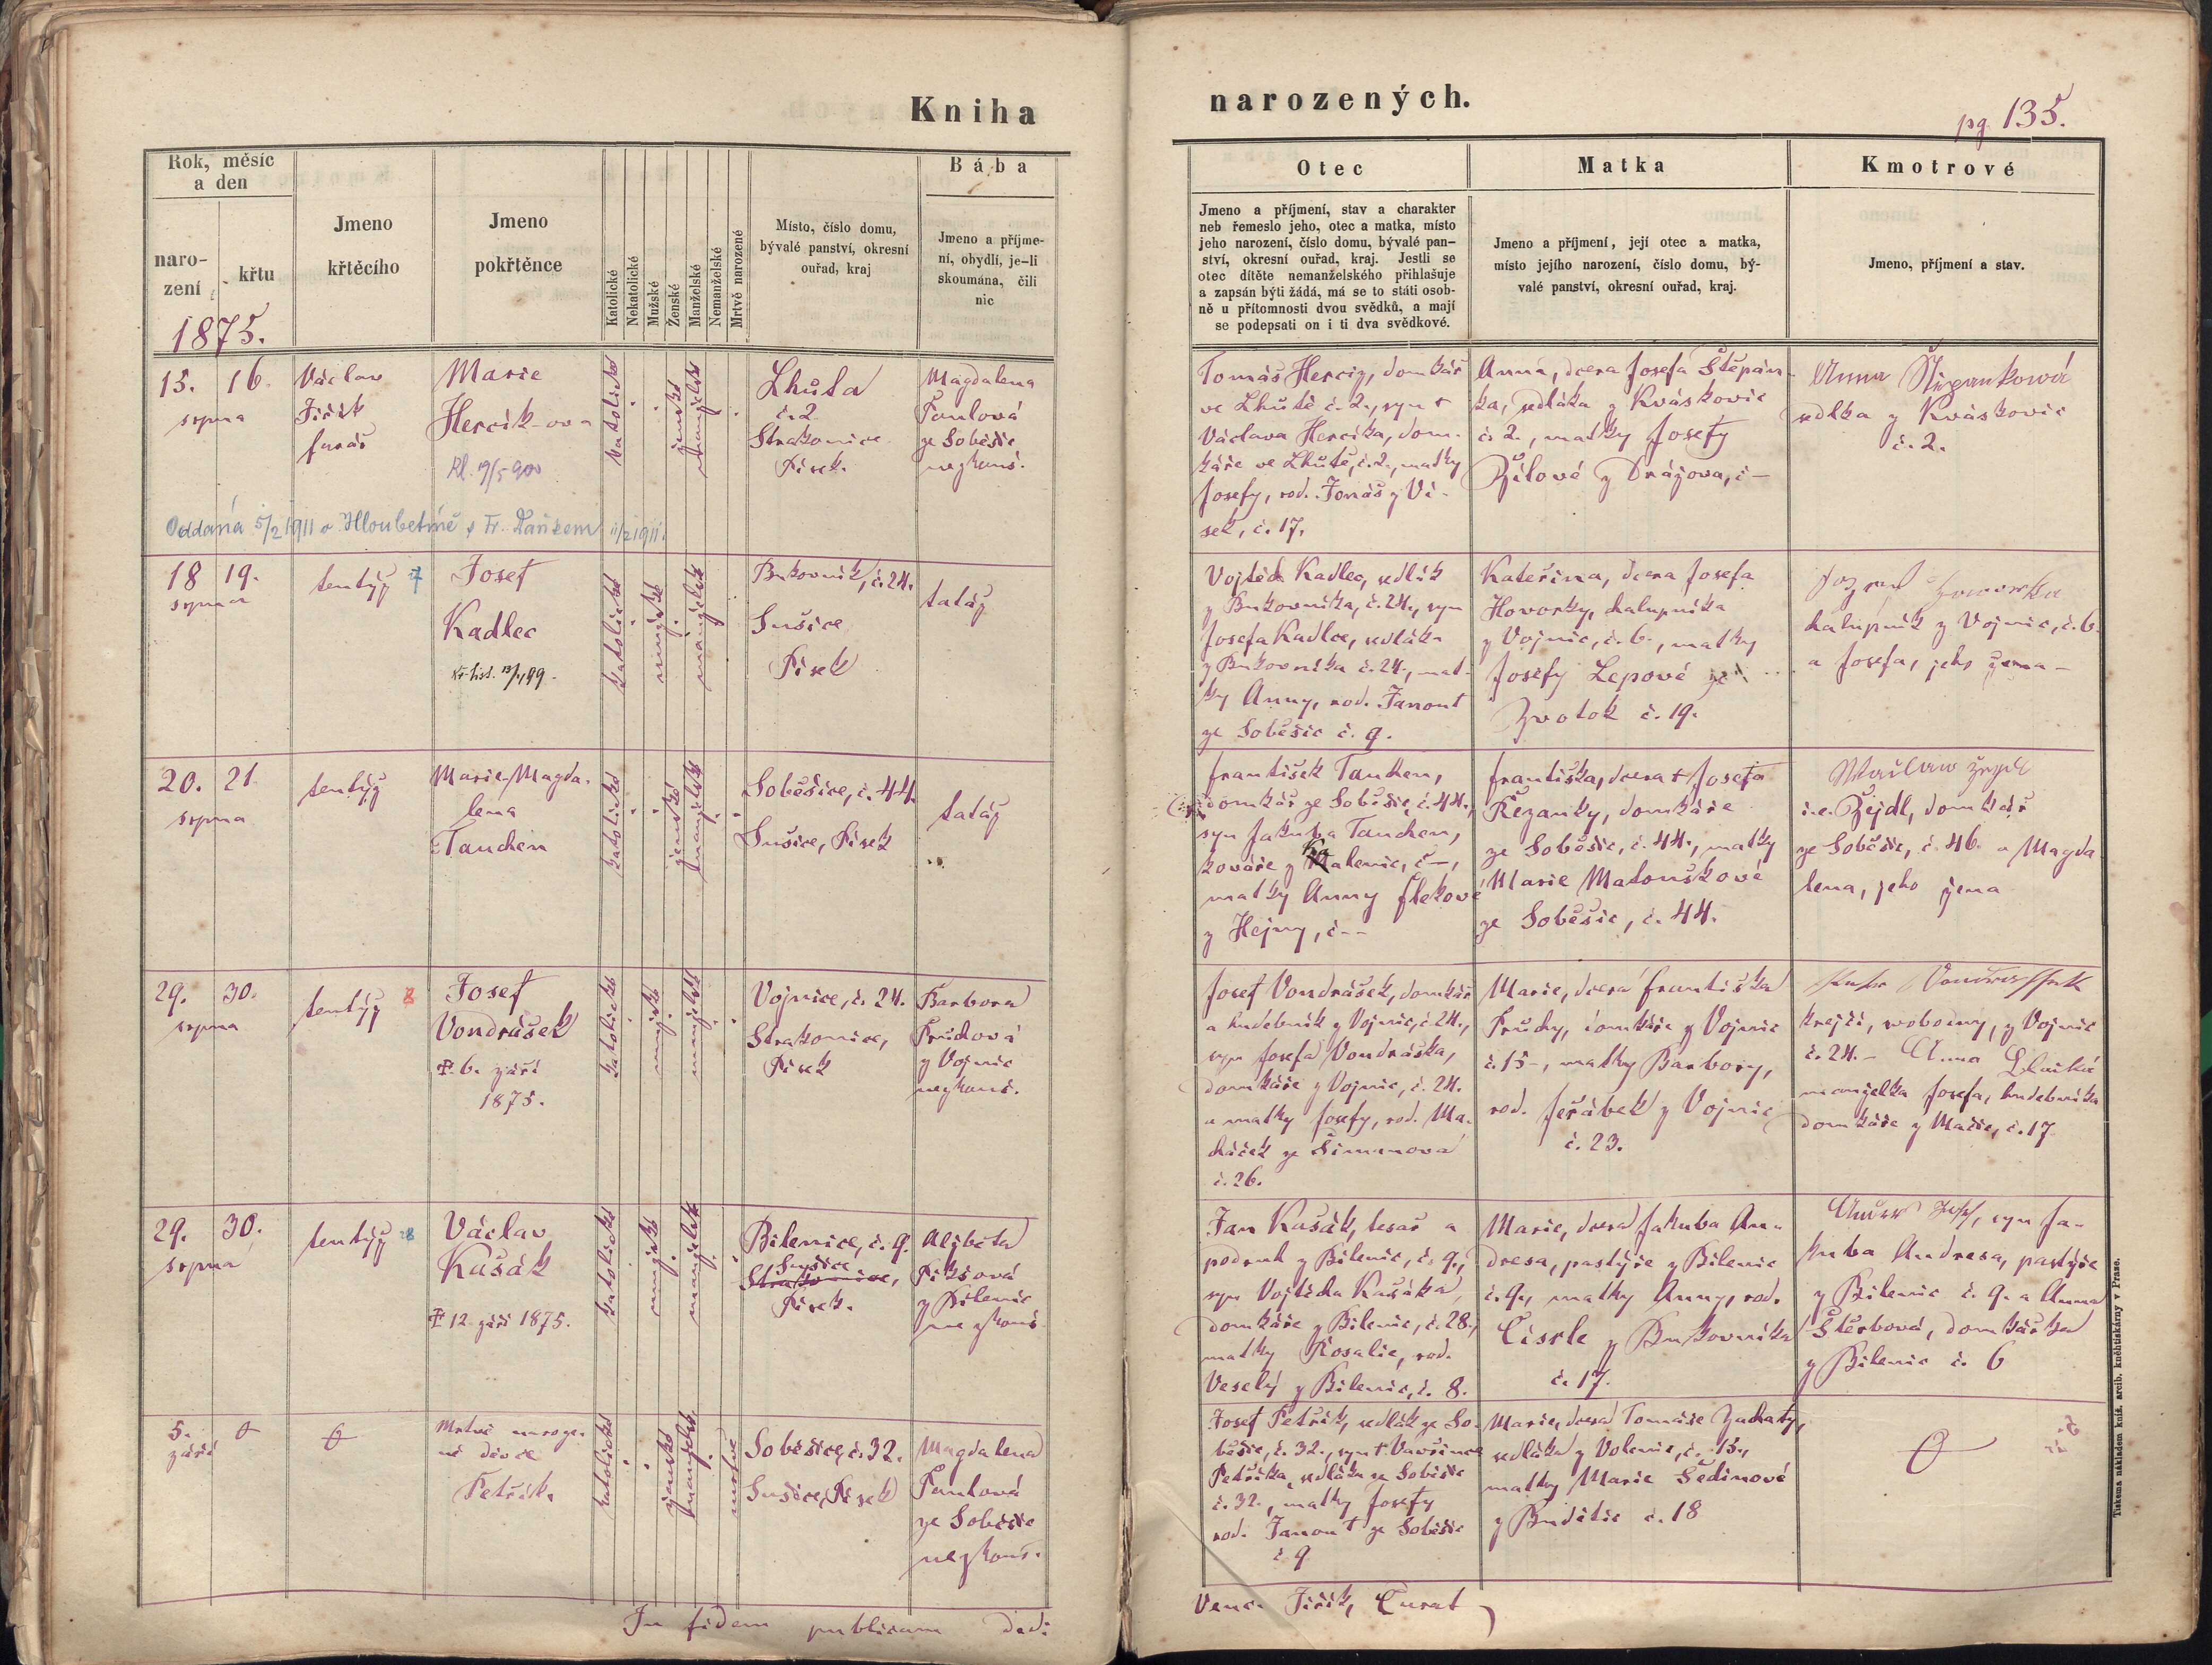 Kniha
narozených.
pg. 135.
Rok, měsíc
a den
naro-
zení
křtu
1875.
Jmeno
křtěcího
Jmeno
pokřtěnce
Katolické
Nekatolické
Mužské
Ženské
Manželské
Nemanželské
Mrtvě narozené
Místo, číslo domu,
bývalé panství, okresní
ouřad, kraj
Bába
Jmeno a příjme-
ní, obydlí, je-li
skoumána, čili
nic
Otec
Jmeno a příjmení, stav a charakter
neb řemeslo jeho, otec a matka, místo
jeho narození, číslo domu, bývalé pan-
ství, okresní ouřad, kraj. Jestli se
otec dítěte nemanželského přihlašuje
a zapsán býti žádá, má se to státi osob-
ně u přítomnosti dvou svědků, a mají
se podepsati on i ti dva svědkové.
Matka
Jmeno a příjmení, její otec a matka,
místo jejího narození, číslo domu, bý-
valé panství, okresní ouřad, kraj.
Kmotrové
Jmeno, příjmení a stav.
15. 16.
srpna
Václav
Jiřík
farář
Marie
Hercik-ova
katolické
ženské
manželské
Lhůta
č. 2.
Strakonice
Písek.
Magdalena
ze Soběšic
nezkouš.
Tomáš Hercig, domkář
ve Lhůtě č. 2., syn †
Václava Hercika, dom-
káře ve Lhůtě, č. 2., matky
Josefy, rod. Jonáš z Vi-
sek, č. 17.
Anna, dcera Josefa Štěpán-
ka, sedláka z Kváskovic
č. 2., matky Josefy
z Drážova, č –
Anna Štěpanková
sedlka z Kváskovic
č. 2.
Oddaná 5/2 1911 v Hloubetíně s Fr. Daňkem 11/2 1911
18 19.
srpna
tentýž
Josef
Kadlec
katolické
mužské
manželské
Bukovník, č. 24.
Sušice
Písek
tatáž
Vojtěch Kadlec, sedlák
z Bukovníka, č. 24., syn
Josefa Kadlce, sedláka
z Bukovníka č. 24., mat-
ky Anny, rod. Janout
ze Soběšic č. 9.
Kateřina, dcera Josefa
Hovorky, chalupníka
z Vojnic, č. 6., matky
Josefy Lepové ze
Zvotok č. 19.
chalupník z Vojnic, č. 6.
a Josefa, jeho žena –
20. 21.
srpna
tentýž
Marie Magda-
lena
Tauchen
katolické
ženské
manželské
Soběšice, č. 44.
Sušice, Písek
tatáž
František Tauchen,
domkář ze Soběšic, č. 44.,
syn Jakuba Tauchen,
kováře z Kalenic, č –,
matky Anny Flekové
z Hejny, č --
Františka, dcera † Josefa
Řezanky, domkáře
ze Soběšic, č. 44., matky
Marie Matouškové
ze Soběšic, č. 44.
i.e. Žejdl, domkář
ze Soběšic, č. 46. a Magda
lena, jeho žena
29. 30.
srpna
tentýž
Josef
Vondrášek
6. září
1875.
katolické
mužské
manželské
Vojnice, č. 24.
Strakonice,
Písek
Barbora
z Vojnic
nezkouš.
Josef Vondrášek, domkář
a hudebník z Vojnic, č. 24.,
syn Josefa Vondráška,
domkáře z Vojnic, č. 24.
a matky Josefy, rod. Ma-
cháček ze Šimanova
č. 26.
Marie, dcera Františka
domkáře z Vojnic
č. 15 –, matky Barbory,
rod. Jeřábek z Vojnic
č. 23.
krejčí, svobodný, z Vojnic
č. 24. – Anna
manželka Josefa, hudebníka
domkáře z Mačic, č. 17
29. 30.
srpna
tentýž
Václav
Kušák
12 září 1875.
katolické
mužské
manželské
Bílenice, č. 9.
Sušice
Strakonice,
Písek.
Alžběta
Pikšová
z Bílenic
nezkouš.
Jan Kušák, tesař a
podruh z Bílenic, č. 9.,
syn Vojtěcha Kušáka,
domkáře z Bílenic, č. 28.,
matky Rosalie, rod.
Veselý z Bílenic, č. 8.
Marie, dcera Jakuba An-
dresa, pastýře z Bílenic
č. 9., matky Anny, rod.
Císrle z Bukovníka
č. 17.
syn Ja-
kuba Andresa, pastýře
z Bílenic č. 9. a Anna
Štěrbová, domkářka
z Bílenic č. 6
5.
září
Mrtvě naroze-
né děvče
Petřík
katolické
ženské
manželské
mrtvé
Soběšice, č. 32.
Sušice, Písek
Magdalena
ze Soběšic
nezkouš.
Josef Petřík, sedlák ze So-
běšic, č. 32., syn † Vavřince
Petříka, sedláka ze Soběšic
č. 32., matky Josefy
rod. Janout ze Soběšic
č. 9
Marie, dcera Tomáše Zachaty,
sedláka z Volenic, č. 15.,
matky Marie Šedinové
z Budětic č. 18
In fidem publicam dedi
Venc. Jiřík, Curat
Tiskem a nákladem kníž. arcib. knihtiskárny v Praze.